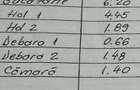 6.20
Hol 1 4.45
Hol 2 1.89
Debara 1 0.66
Debara 2 1.48
Cămară 1.40